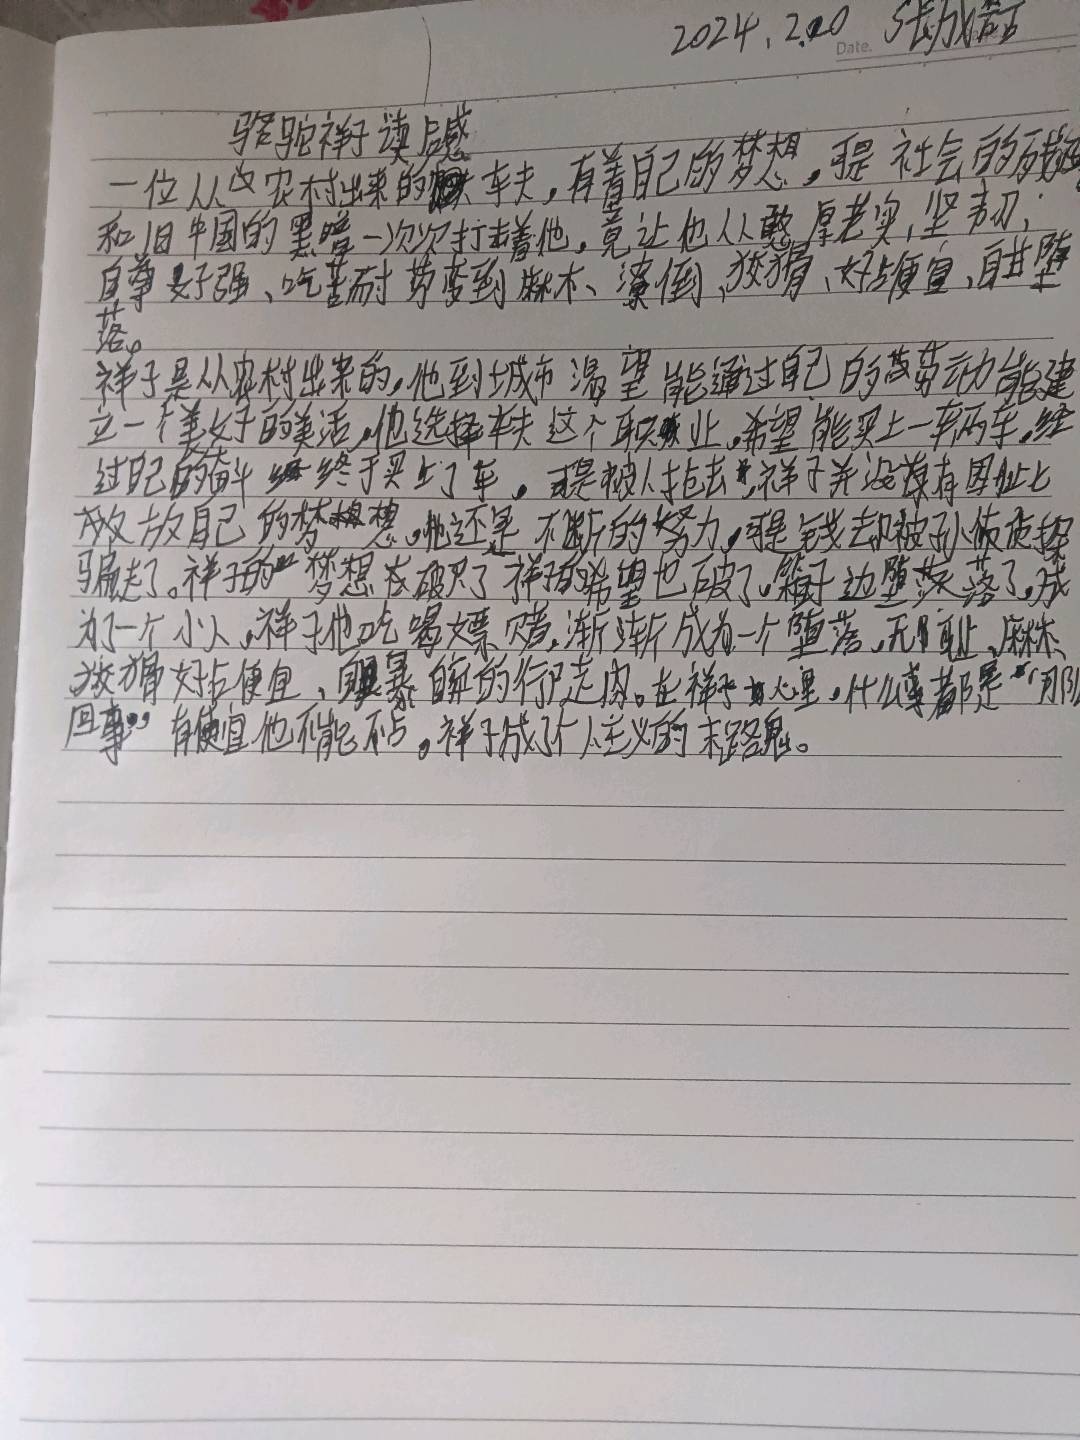 2024.2.20 张成
Date.
骆驼祥子读后感
一位从农村出来的车夫,有着自己的梦想,可是社会的残酷
和旧中国的黑暗一次次打击着他,竟让他从憨厚老实,坚韧,
自尊好强、吃苦耐劳变到麻木、潦倒、狡猾、好占便宜、自甘堕
落。
祥子是从农村出来的,他到城市渴望能通过自己的劳动能建
立一个美好的美活,他选择车夫这个职业,希望能买上一辆车,经
过自己的奋斗终于买上了车,可是被人抢去,祥子并没有因此
放放自己的梦想,他还是不断的努力,可是钱却被孙侦探
骗走了。祥子的梦想破灭了祥子的希望也破了。祥子边堕落了,成
为了一个小人,祥子他吃喝嫖赌,渐渐成为一个堕落,无耻、麻木、
狡猾好占便宜、自暴自弃的行尸走肉。在祥子心里,什么事都是“那
回事”有便宜他不能不占。祥子成了个人主义的末路鬼。